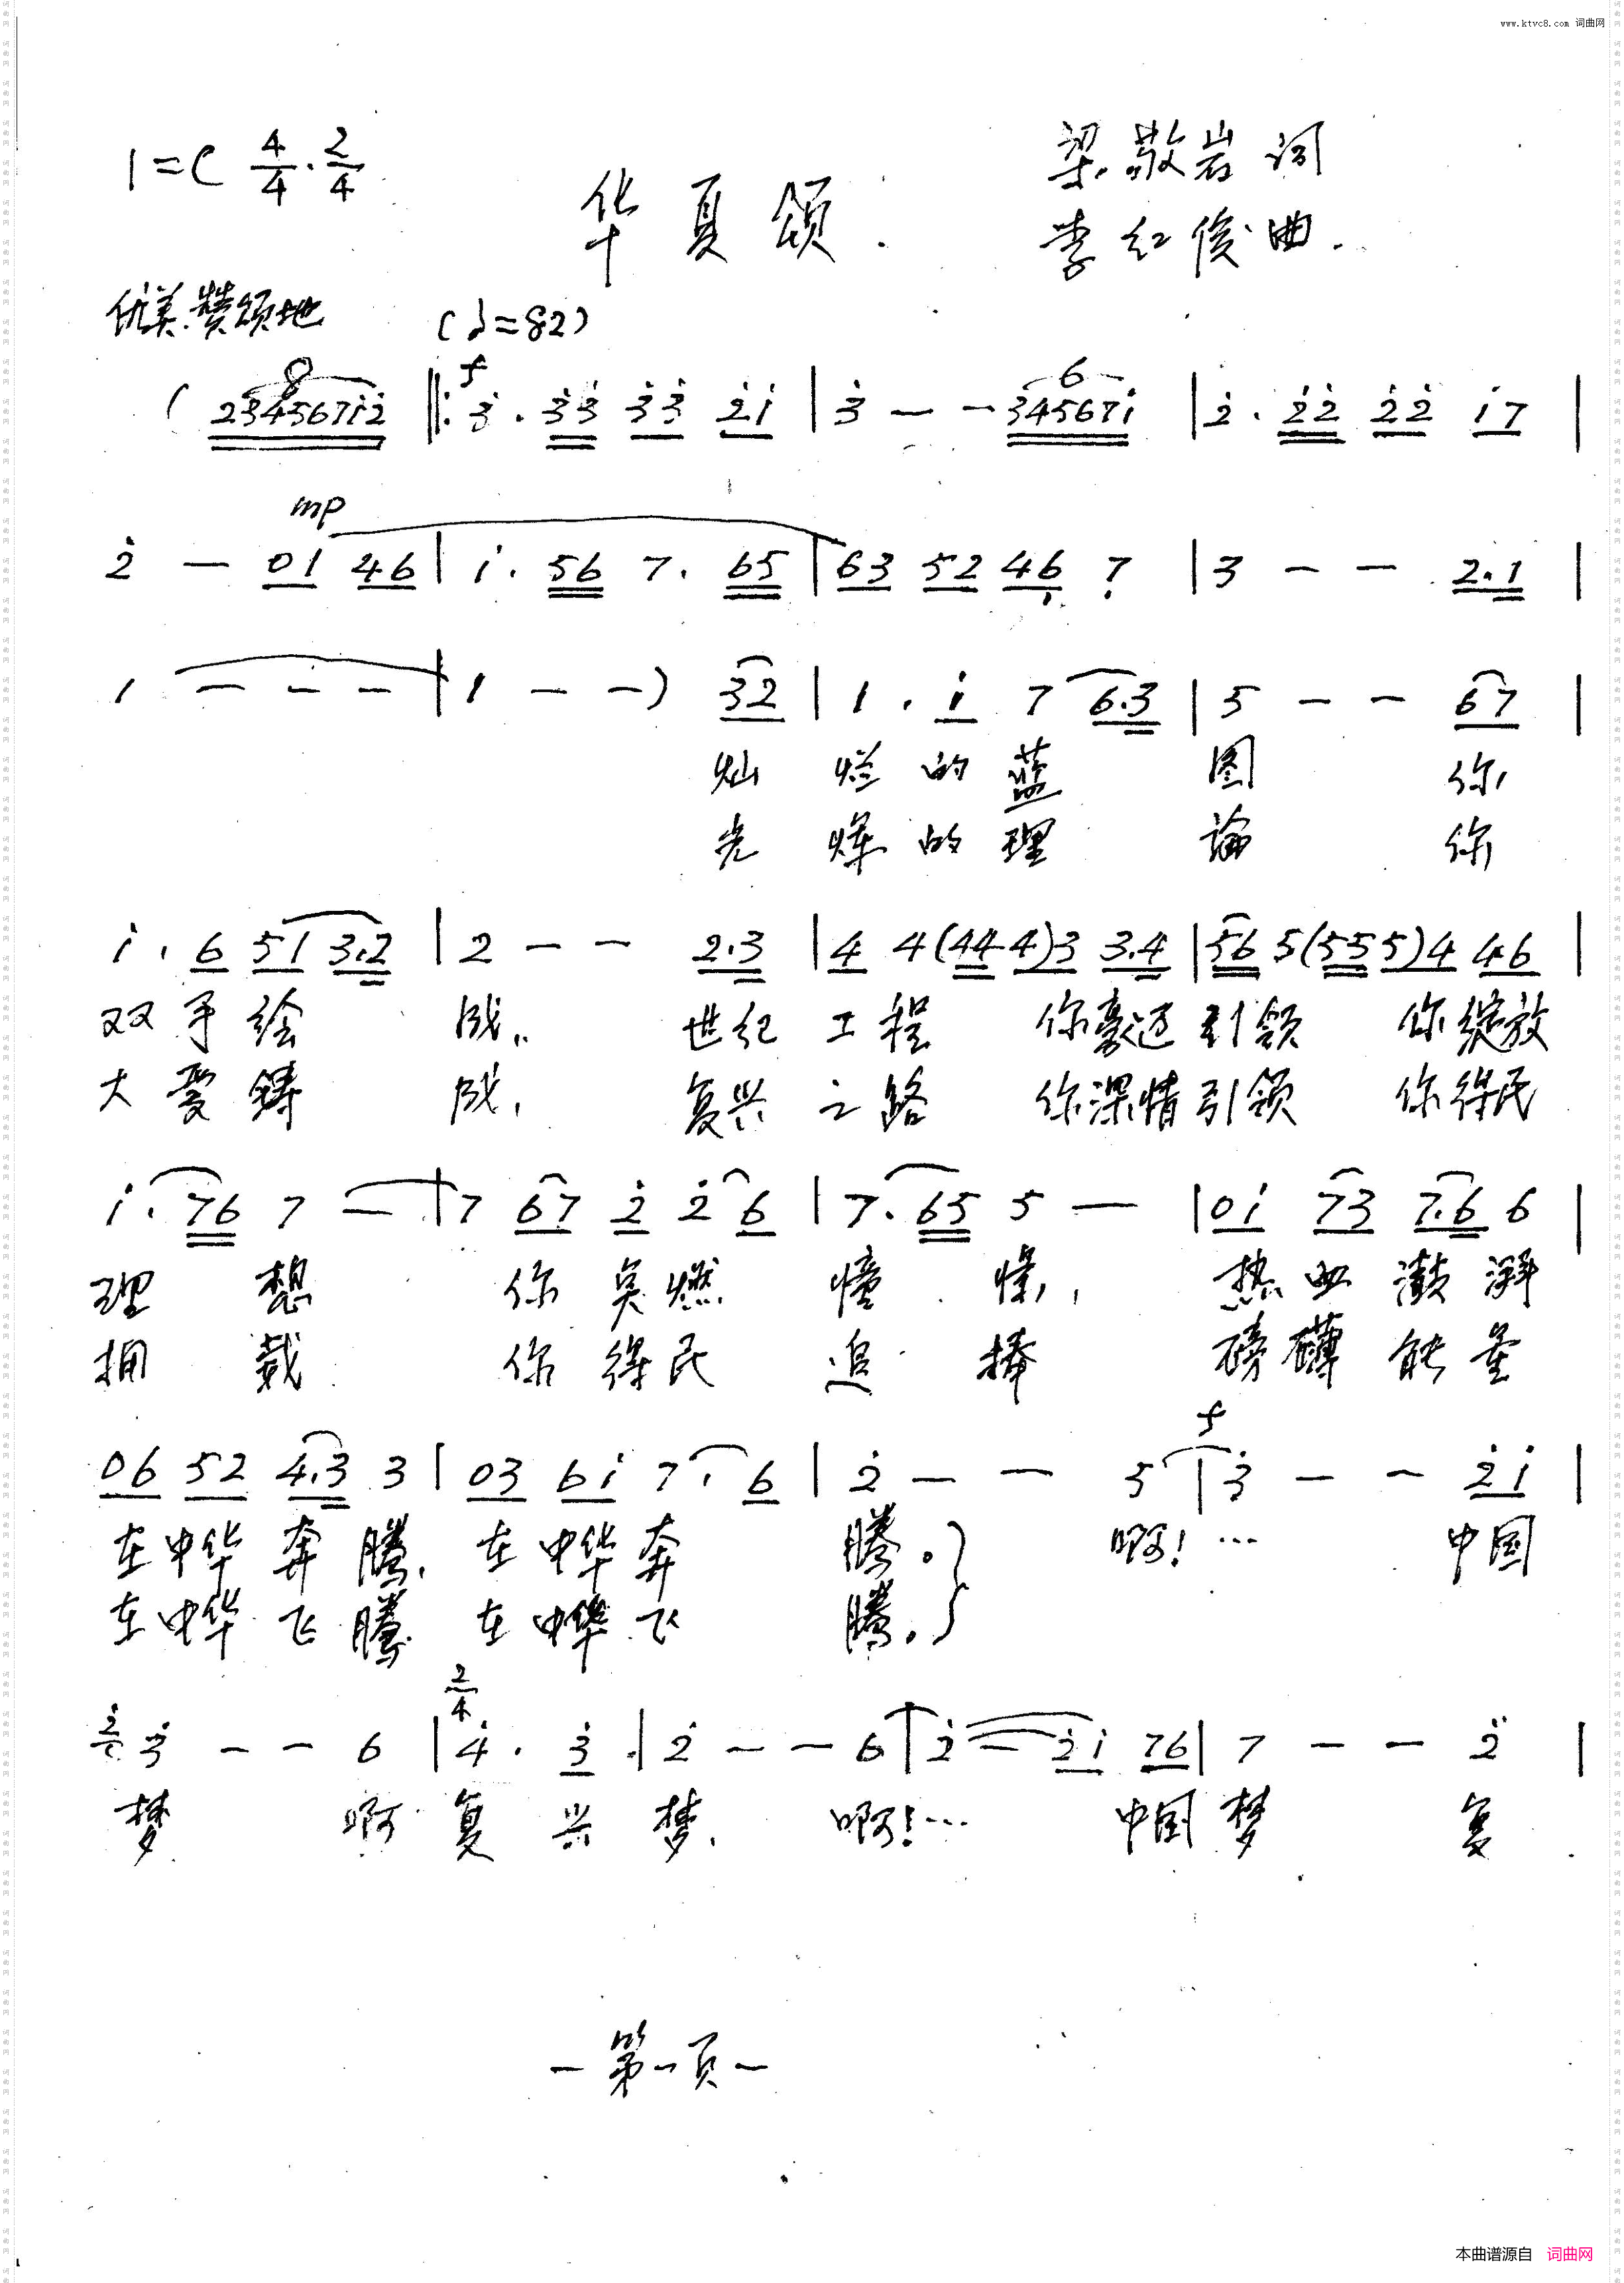 www.ktvc8.com 词曲网
1=C 4/4 · 2/4
梁敬岩 词
华夏颂
李红俊 曲.
优美.赞颂地 (♩=82)
8 f 6
( 234567i̇2̇ ‖: 3̇. 3̇3̇ 3̇3̇ 2̇i̇ | 3̇ — — 34567i̇ | 2̇. 2̇2̇ 2̇2̇ i̇7 |
mp
2̇ — 01 46 | i̇. 56 7. 65 | 63 52 46̣ 7̣ | 3 — — 2.1 |
1 — — — | 1 — —) 32 | 1. i̇ 7 6.3 | 5 — — 67 |
灿 烂 的 蓝 图 你,
光 辉 的 理 论 你
i̇. 6 51 3.2 | 2 — — 2.3 | 4 4(44 4)3 3.4 | 56 5(55 5)4 46 |
双 手 绘 成, 世纪 工 程 你豪迈 引领 你绽放
大 爱 铸 成, 复兴 之 路 你深情 引领 你得民
i̇. 76 7 — | 7 67 2̇ 2̇ 6 | 7. 65 5 — | 0i̇ 73 7.6 6 |
理 想 你 点燃 憧 憬, 热 血 澎 湃
拥 戴 你 得民 追 捧 磅礴 能 量
f
06 52 4.3 3 | 03 6i̇ 7. 6 | 2̇ — — 5 | 3̇ — — 2̇i̇ |
在中华 奔 腾, 在 中华 奔 腾。} 啊!… 中国
在中华 飞 腾 在 中华 飞 腾。}
2/4
2̇ 3̇ — — 6 | 4̇. 3̇ | 2̇ — — 6 | 2̇ — 2̇i̇ 76 | 7 — — 2̇ |
梦 啊 复 兴 梦、 啊!… 中国 梦 复
—第一页—
本曲谱源自 词曲网